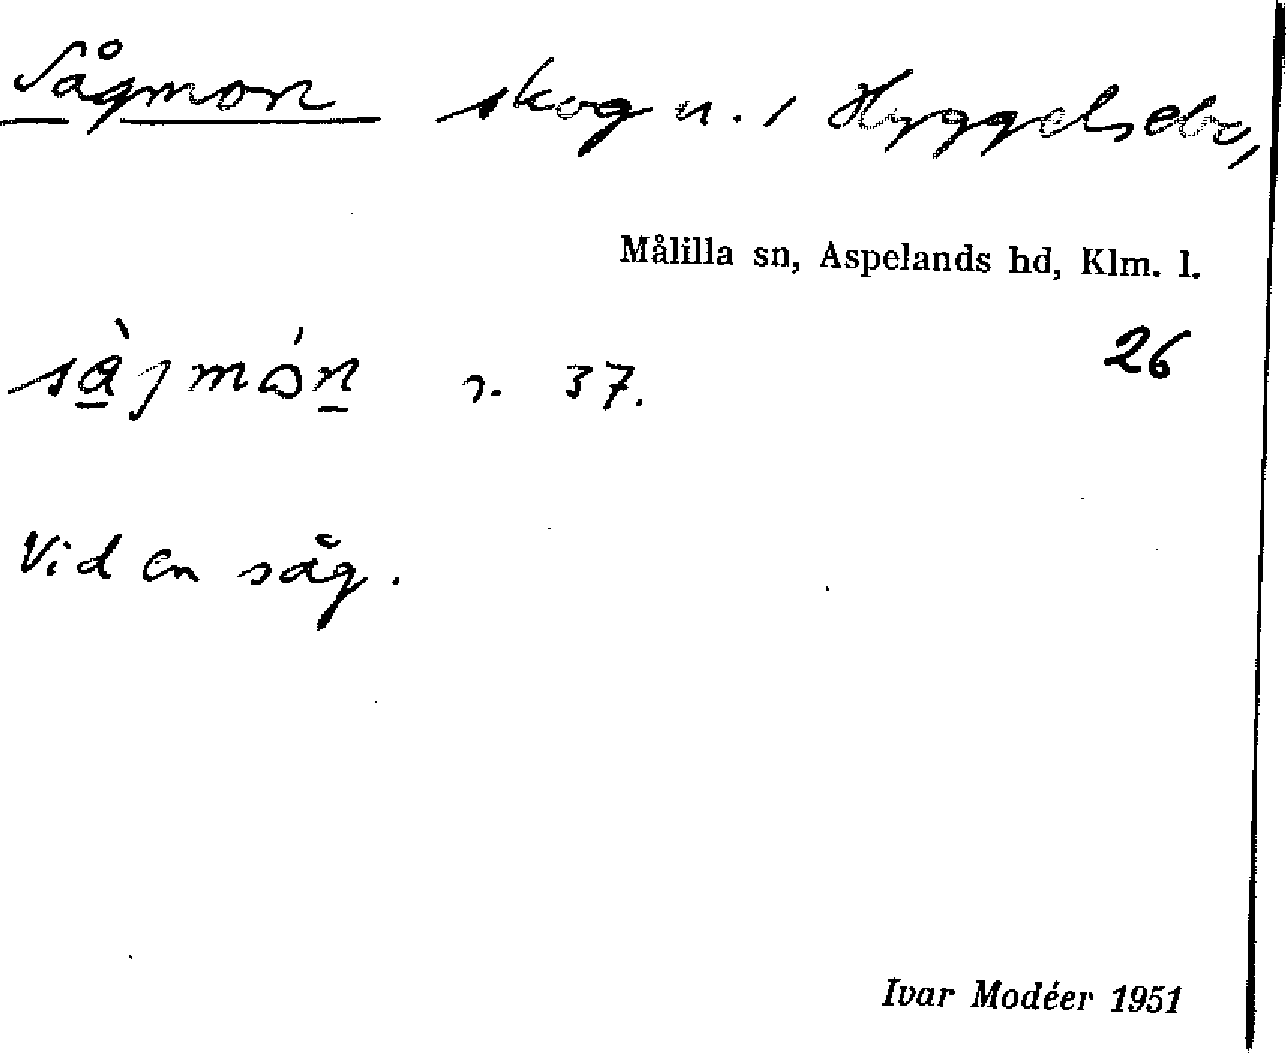 Sågmon skog n. i Hyggelsebo,
Målilla sn, Aspelands hd, Klm. l.
26
r. 37.
Vid en såg.
Ivar Modéer 1951